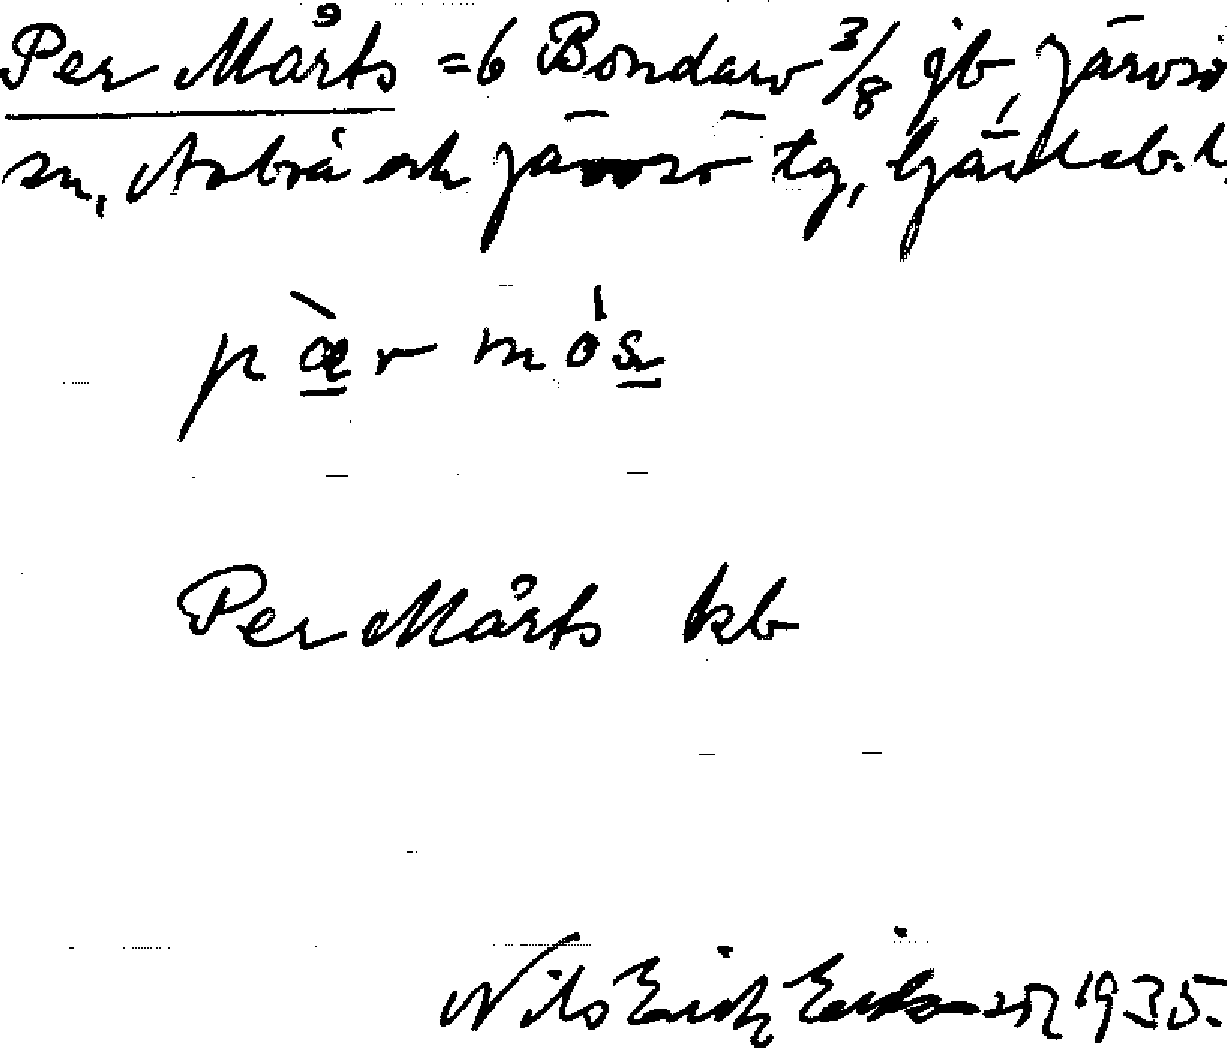 Per Mårts = 6 Bondarv 3/8 jb, Järvsö
sn, Arbrå och Järvsö tg, Gävleb. l.
pæ̀r mós
Per Mårts kb
Nils Erik Eriksson 1935.